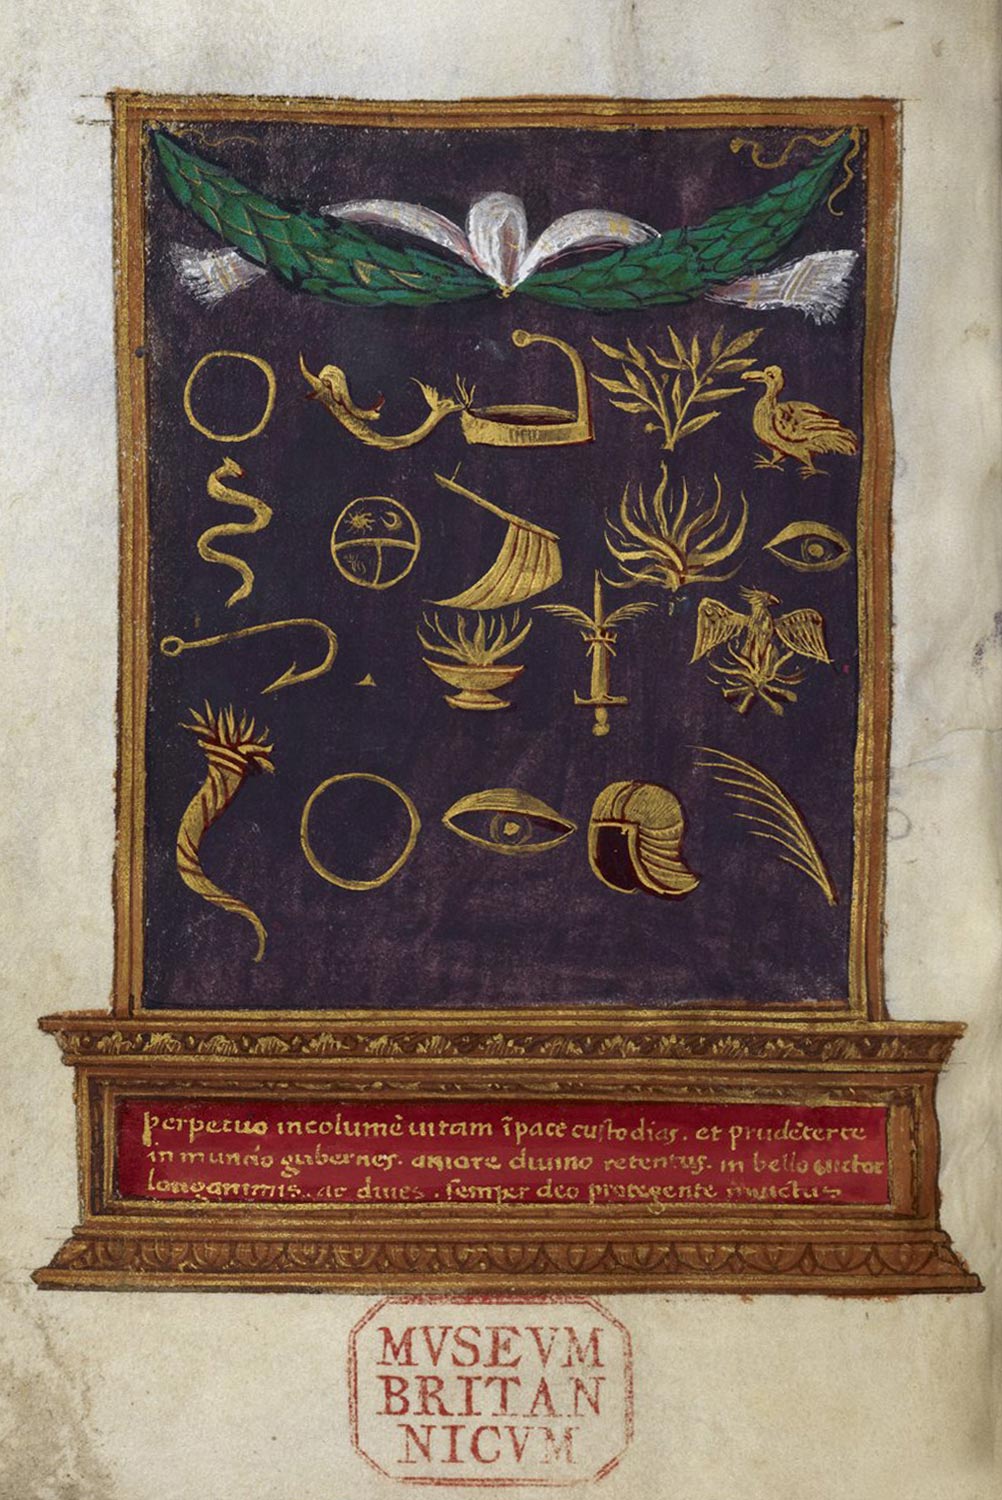 perpetuo incolumē uitam ī pace custodias. et prudēterte
in mundo gubernes. amore diuino retentus. in bello uictor
longanimis. ac diues. semper deo protegente inuictus
MVSEVM
BRITAN
NICVM